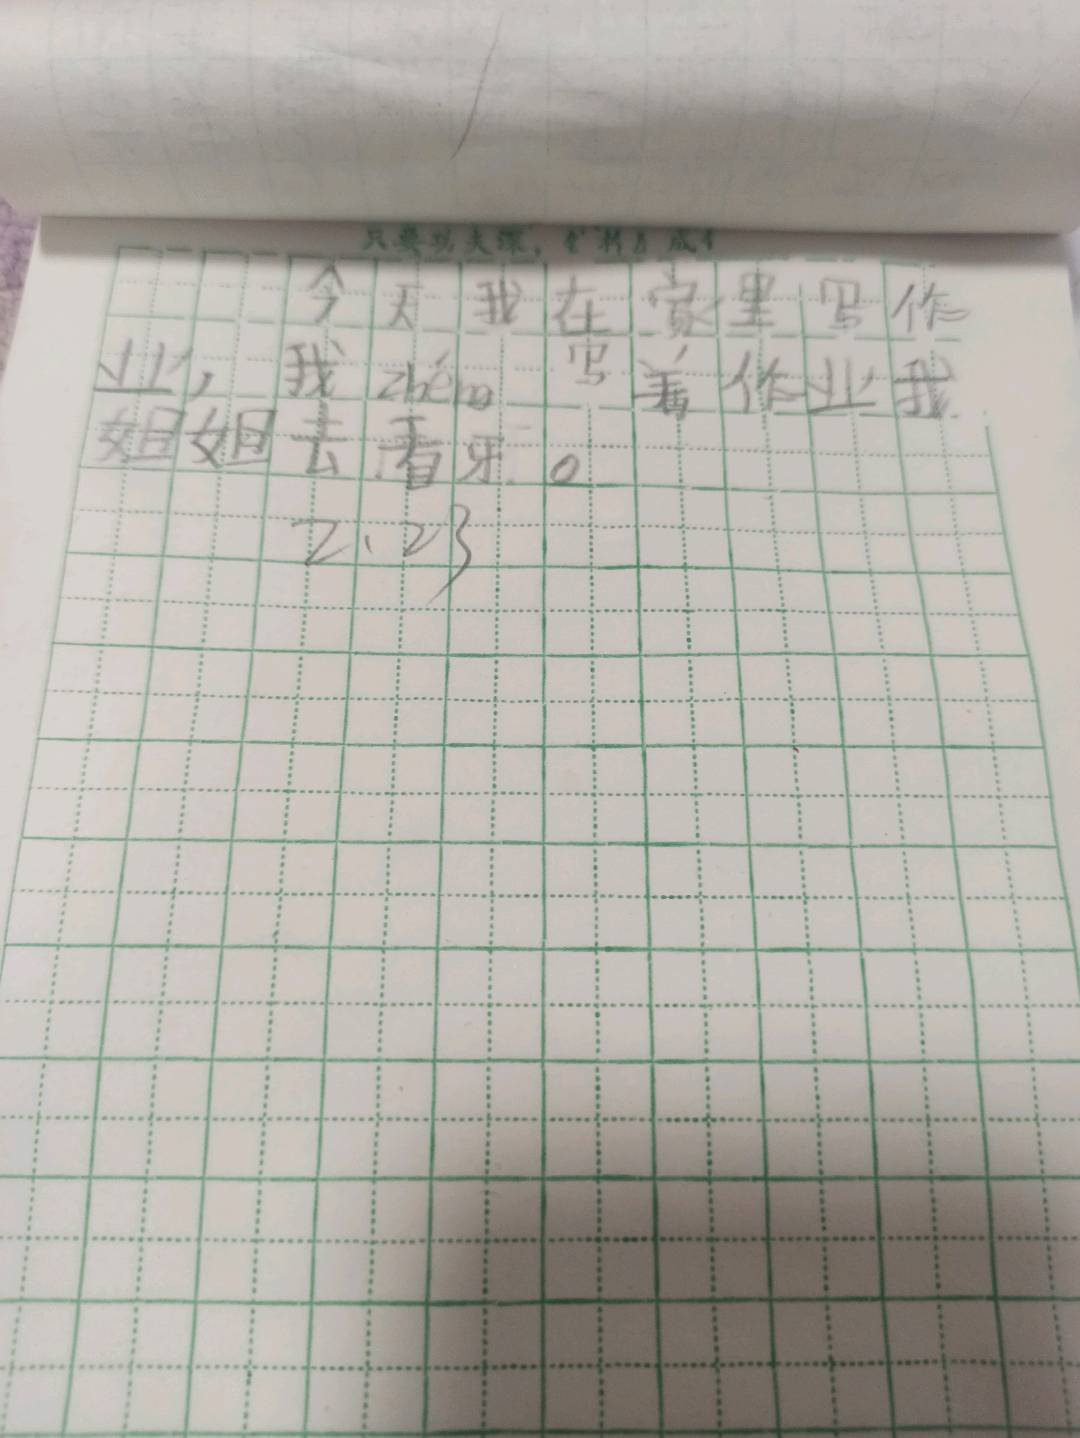 只要功夫深，
今天我在家里写作
业，我zhèng写着作业我
姐姐去看牙。
2、23